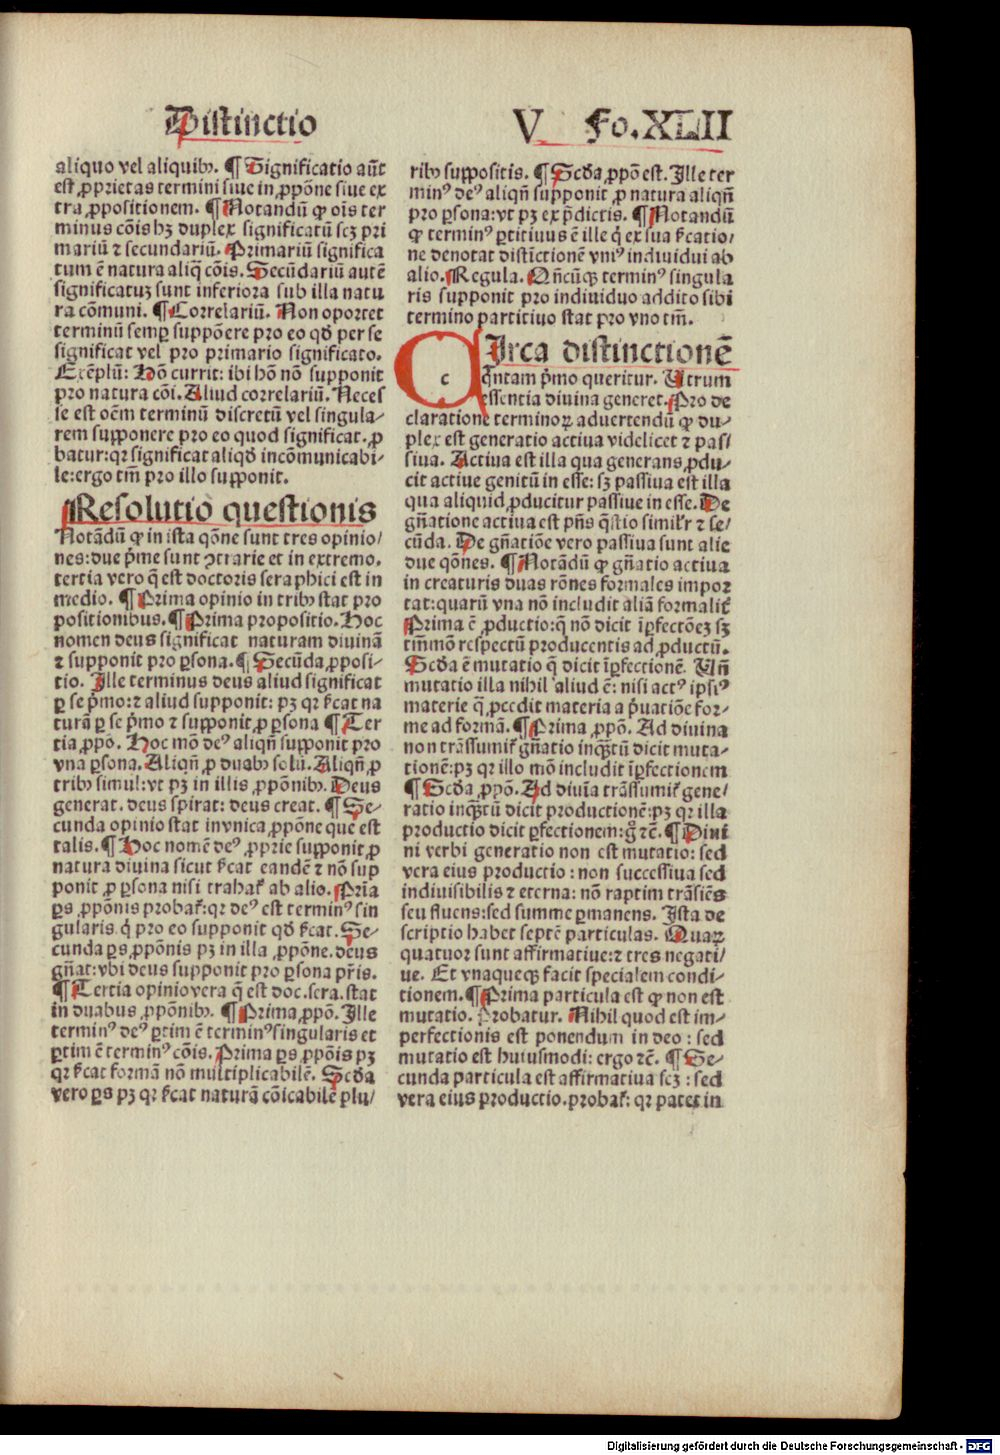 Distinctio V Fo.XLII
aliquo vel aliquibꝰ. ¶ Significatio aūt
est ꝓprietas termini siue in ꝓpōne siue ex
tra ꝓpositionem. ¶ Notandū ꝙ oīs ter
minus cōis hꝫ duplex significatū scꝫ pri
mariū ⁊ secundariū. Primariū significa
tum ē natura aliq̄ cōis. Secūdariū autē
significatuꝫ sunt inferiora sub illa natu
ra cōmuni. ¶ Correlariū. Non oportet
terminū semꝑ suppōere pro eo qd̄ per se
significat vel pro primario significato.
Exēplū: Hō currit: ibi hō nō supponit
pro natura cōi. Aliud correlariū. Neces
se est oēm terminū discretū vel singula-
rem supponere pro eo quod significat. ꝓ
batur: qꝛ significat aliqd̄ incōmunicabi-
le: ergo tm̄ pro illo supponit.
¶ Resolutio questionis
Notādū ꝙ in ista qōne sunt tres opinio/
nes: due p̄me sunt ꝯtrarie et in extremo.
tertia vero q̄ est doctoris seraphici est in
medio. ¶ Prima opinio in tribꝰ stat pro
positionibus. ¶ Prima propositio. Hoc
nomen deus significat naturam diuinā
⁊ supponit pro ꝑsona. ¶ Secūda ꝓposi-
tio. Ille terminus deus aliud significat
ꝑ se p̄mo: ⁊ aliud supponit: pꝫ qꝛ s̄cat na
turā ꝑ se p̄mo ⁊ supponit ꝓ ꝑsona ¶ Ter
tia ꝓpō. Hoc mō deꝰ aliqn̄ supponit pro
vna ꝑsona. Aliqn̄ ꝓ duabꝰ solū. Aliqn̄ ꝓ
tribꝰ simul: vt pꝫ in illis ꝓpōnibꝰ. Deus
generat. deus spirat: deus creat. ¶ Se-
cunda opinio stat in vnica ꝓpōne que est
talis. ¶ Hoc nomē deꝰ ꝓprie supponit ꝓ
natura diuina sicut s̄cat eandē ⁊ nō sup
ponit ꝓ ꝑsona nisi trahat̄ ab alio. Prīa
ꝑs ꝓpōnis probat̄: qꝛ deꝰ est terminꝰ sin
gularis q̇ pro eo supponit qd̄ s̄cat. Se-
cunda ꝑs ꝓpōnis pꝫ in illa ꝓpōne. deus
gn̄at: vbi deus supponit pro ꝑsona pr̄is.
¶ Tertia opinio vera q̄ est doc. sera. stat
in duabus ꝓpōnibꝰ. ¶ Prima ꝓpō. Ille
terminꝰ deꝰ ꝑtim ē terminꝰ singularis et
ꝑtim ē terminꝰ cōis. Prima ꝑs ꝓpōis pꝫ
qꝛ s̄cat formā nō multiplicabilē. Scd̄a
vero ꝑs pꝫ qꝛ s̄cat naturā cōicabilē plu/
ribꝰ suppositis. ¶ Scd̄a ꝓpō est. Ille ter
minꝰ deꝰ aliqn̄ supponit ꝓ natura aliqn̄
pro ꝑsona: vt pꝫ ex p̄dictis. ¶ Notandū
ꝙ terminꝰ ꝑtitiuus ē ille q̇ ex sua s̄catio/
ne denotat distictionē vniꝰ indiuidui ab
alio. Regula. Qn̄cūqꝫ terminꝰ singula
ris supponit pro indiuiduo addito sibi
termino partitiuo stat pro vno tm̄.
c
Irca distinctionē
q̄ntam p̄mo queritur. Vtrum
essentia diuina generet. Pro de
claratione terminoꝝ aduertendū ꝙ du-
plex est generatio actiua videlicet ⁊ pas/
siua. Actiua est illa qua generans ꝓdu-
cit actiue genitū in esse: sꝫ passiua est illa
qua aliquid ꝓducitur passiue in esse. De
gn̄atione actiua est pn̄s q̄stio simil'r ⁊ se/
cūda. De gn̄atiōe vero passiua sunt alie
due qōnes. ¶ Notādū ꝙ gn̄atio actiua
in creaturis duas rōnes formales impor
tat: quarū vna nō includit aliā formalit̄
Prima ē ꝓductio: q̄ nō dicit īꝑfectōeꝫ sꝫ
tm̄mō respectū producentis ad ꝓductū.
Scd̄a ē mutatio q̄ dicit īꝑfectionē. Vn̄
mutatio illa nihil aliud ē: nisi actꝰ ipsiꝰ
materie q̄ ꝓcedit materia a p̄uatiōe for-
me ad formā. ¶ Prima ꝓpō. Ad diuina
non trāssumit̄ gn̄atio inqꝫtū dicit muta-
tionē: pꝫ qꝛ illo mō includit īꝑfectionem
¶ Scd̄a ꝓpō. Ad diuīa trāssumit̄ gene/
ratio inqꝫtū dicit productionē: pꝫ qꝛ illa
productio dicit ꝑfectionem: g̊ rē. ¶ Diui
ni verbi generatio non est mutatio: sed
vera eius productio: non successiua sed
indiuisibilis ⁊ eterna: nō raptim trāsiēs
seu fluens: sed summe ꝑmanens. Ista de
scriptio habet septē particulas. Quaꝝ
quatuor sunt affirmatiue: ⁊ tres negati/
ue. Et vnaqueqꝫ facit specialem condi-
tionem. ¶ Prima particula est ꝙ non est
mutatio. Probatur. Nihil quod est im-
perfectionis est ponendum in deo: sed
mutatio est huiusmodi: ergo rē. ¶ Se-
cunda particula est affirmatiua scꝫ: sed
vera eius productio. probat̄: qꝛ patet in
Digitalisierung gefördert durch die Deutsche Forschungsgemeinschaft - DFG